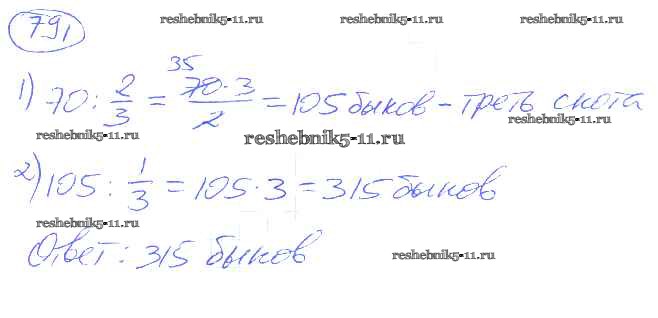 791
reshebnik5-11.ru reshebnik5-11.ru reshebnik5-11.ru
35
1) 70 : 2/3 = 70·3/2 = 105 быков - треть скота
reshebnik5-11.ru reshebnik5-11.ru
reshebnik5-11.ru
2) 105 : 1/3 = 105·3 = 315 быков
reshebnik5-11.ru
Ответ: 315 быков
reshebnik5-11.ru